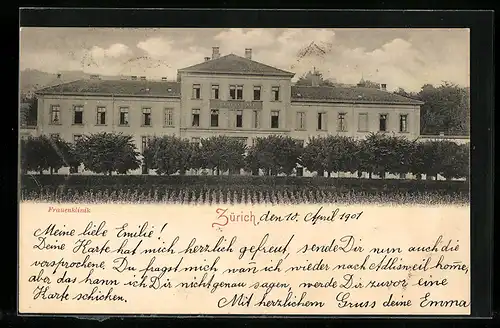 Frauenklinik
Zürich, den 10. April 1901
Meine liebe Emilie!
Deine Karte hat mich herzlich gefreut, sende Dir nun auch die
versprochene. Du fragst mich wan ich wieder nach Adlisweil kome,
aber das kann ich Dir nicht genau sagen, werde Dir zuvor eine
Karte schicken.
Mit herzlichem Gruss deine Emma